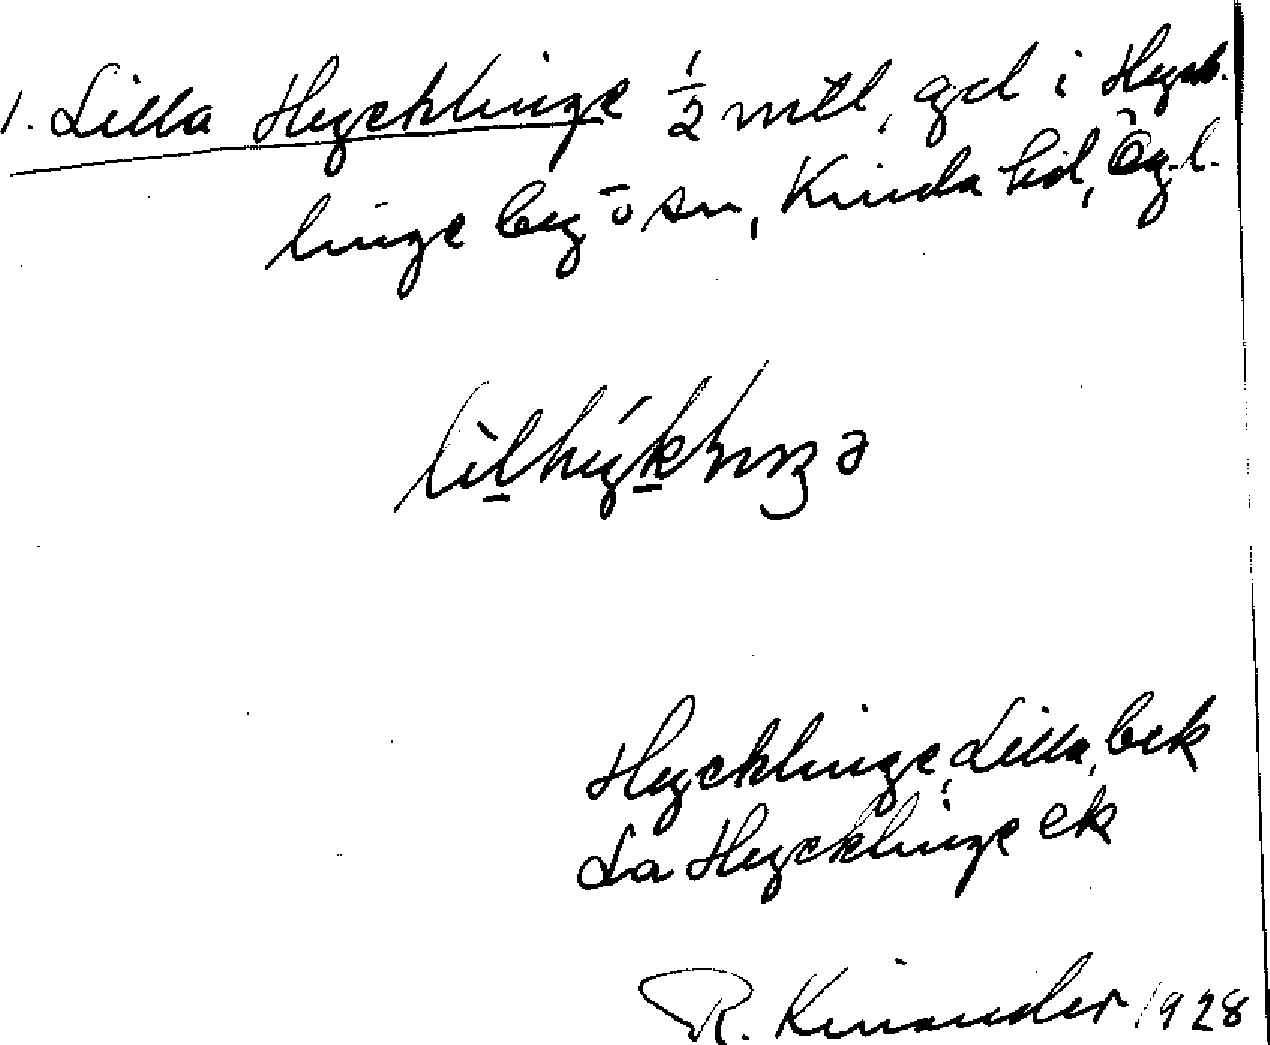 1. Lilla Hycklinge ½ mtl, gd i Hyck-
linge by o sn, Kinda hd, Ögl.
Hycklinge, Lilla, bek
La Hycklinge ek
R. Kinander 1928